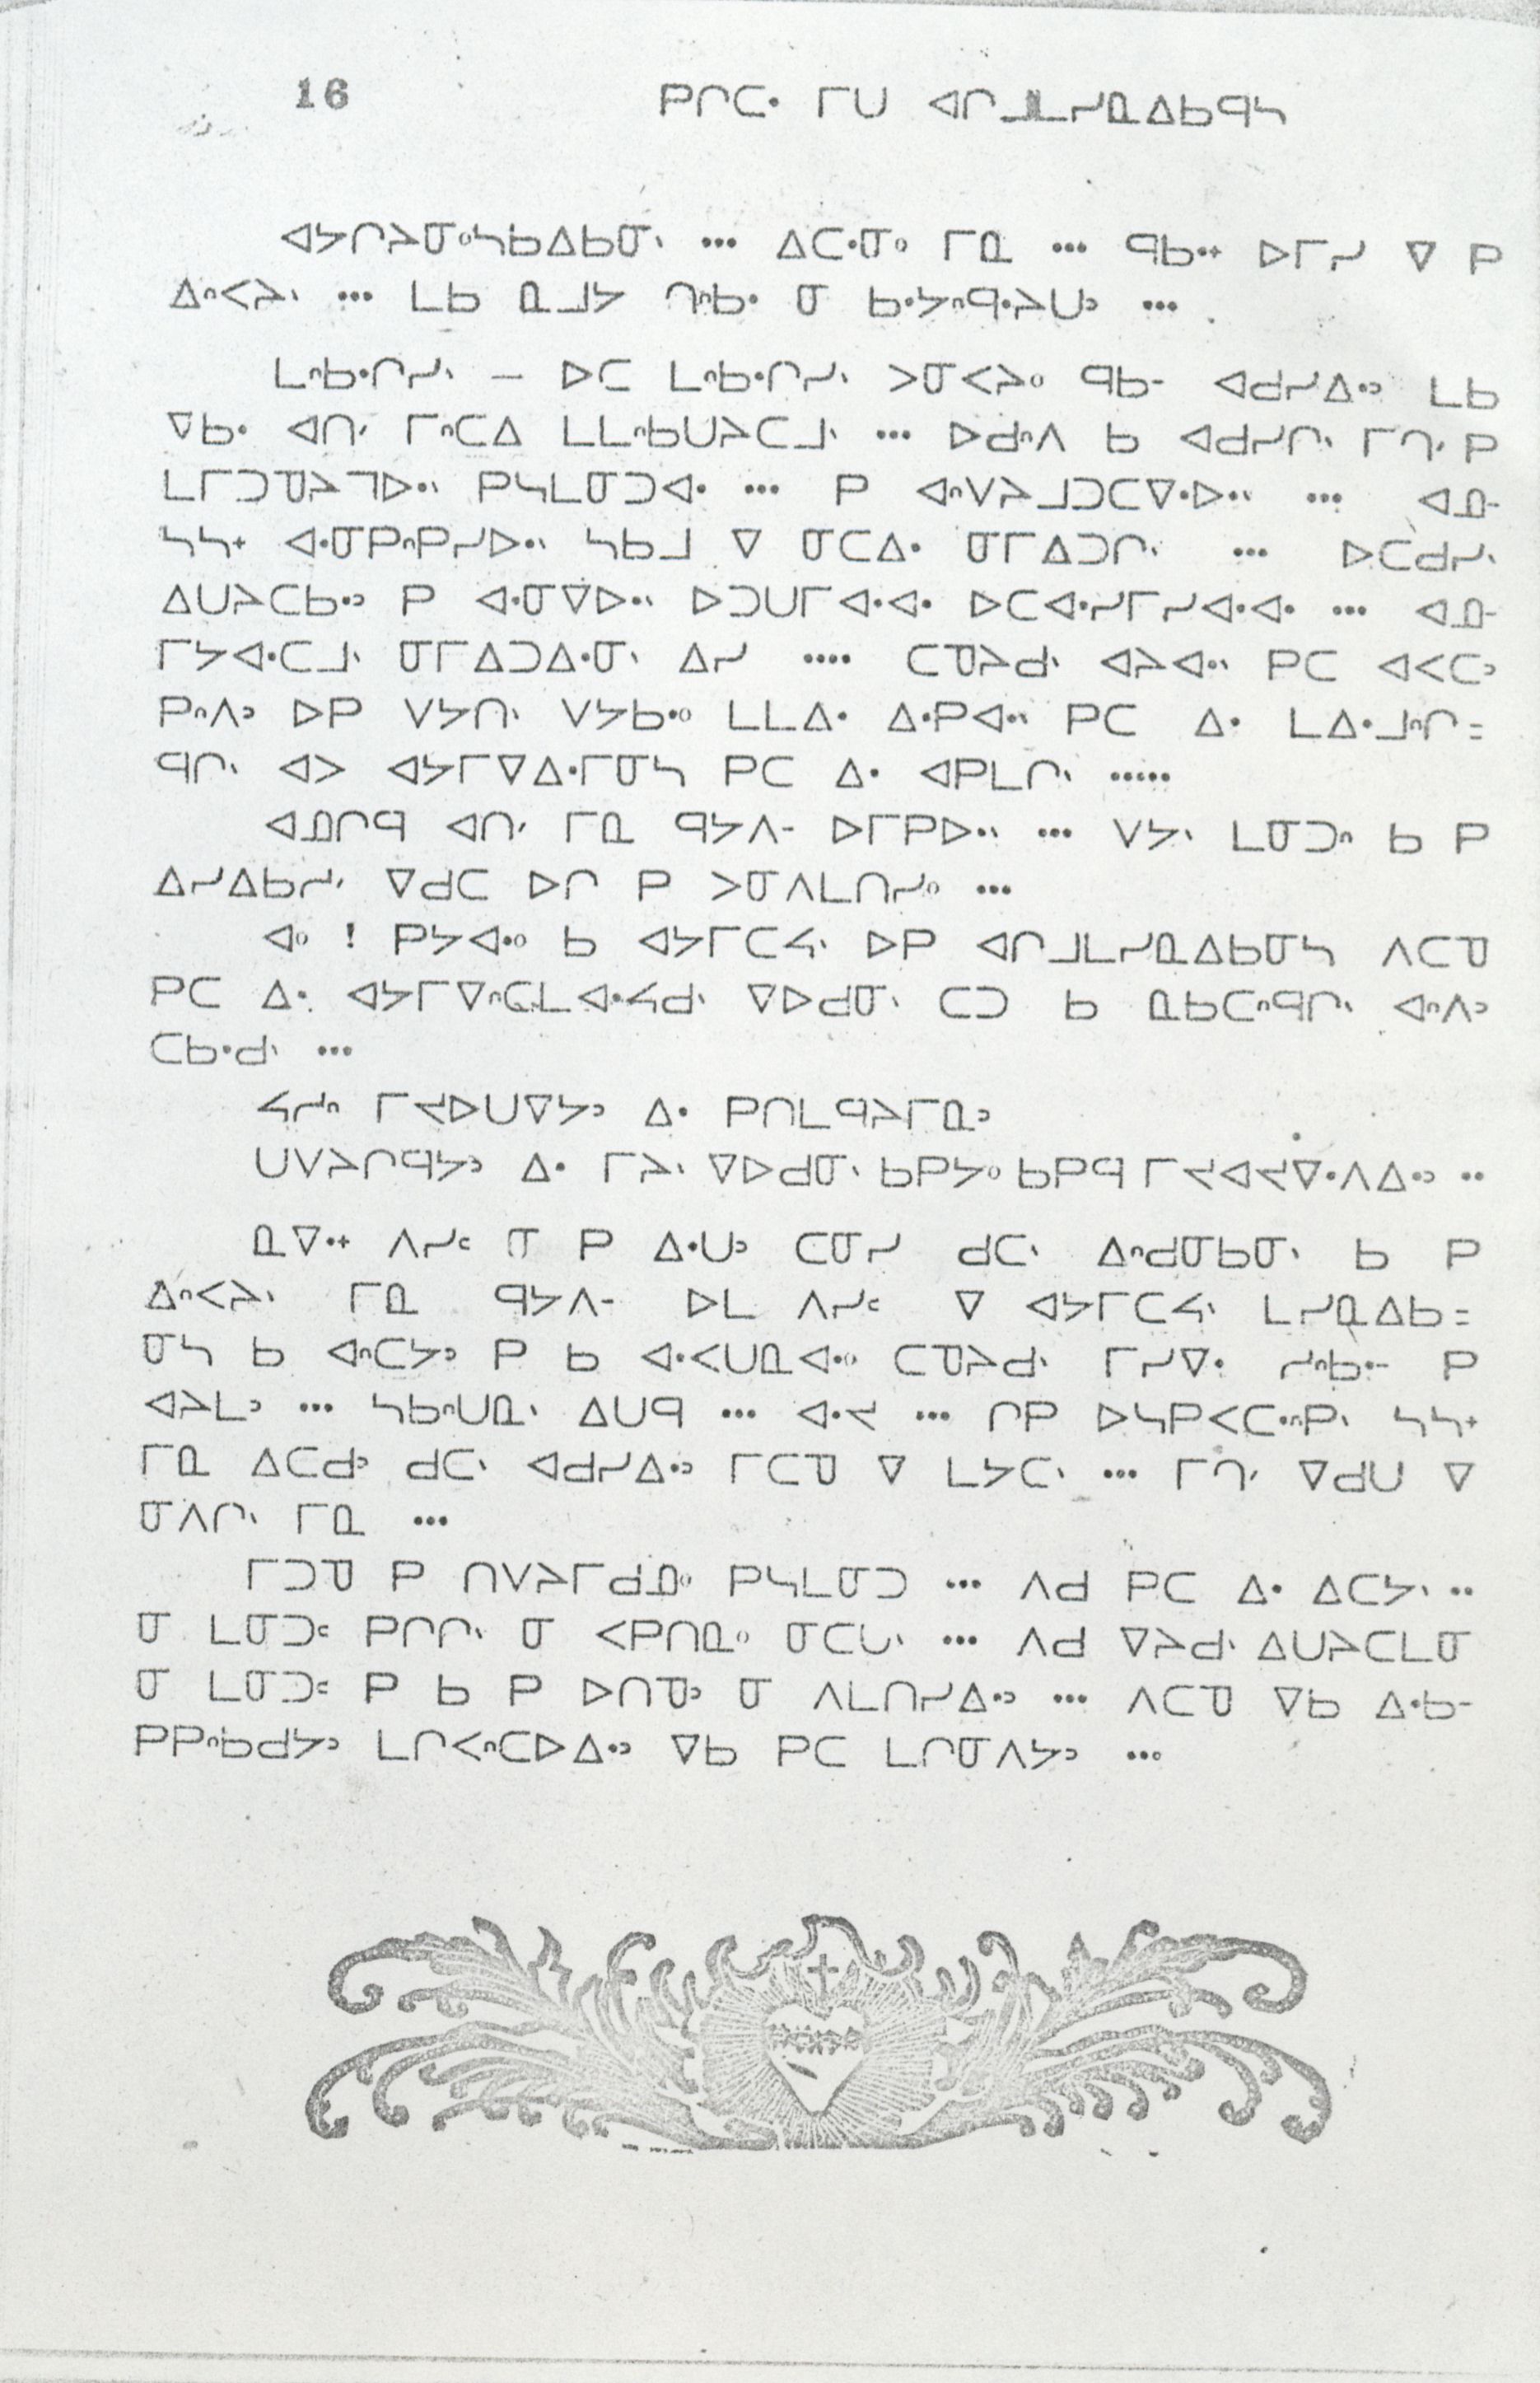 16 ᑭᒋᑕᐧ ᒥᑌ ᐊᒋᒧᒪᓯᓇᐃᑲᑫᓴ
ᐊᔭᒋᔨᓂᐤᓴᑲᐃᑲᓂᐠ ... ᐃᑕᐧᓂᐤ ᒥᓇ ... ᑫᑲᐧᕀ ᐅᒥᓯ ᐁ ᑭ
ᐃᐧᐢᐸᔨᐠ ... ᒪᑲ ᓇᒧᔭ ᒉᐢᑲᐧ ᓂ ᑲᐧᔭᐢᑫᐧᔨᑌᐣ ...
ᒪᐢᑲᐧᒋᓯᐠ — ᐅᑕ ᒪᐢᑲᐧᒋᓯᐠ ᐳᓂᐸᔨᐤ ᑫᑲ- ᐊᑯᓯᐃᐧᐣ ᒪᑲ
ᐁᑲᐧ ᐊᑎᐟ ᒥᐢᑕᐃ ᒪᒪᐢᑲᑌᔨᑕᒧᐠ ... ᐅᑯᐢᐱ ᑲ ᐊᑯᓯᒋᐠ ᒥᒉᐟ ᑭ
ᒪᒥᑐᓀᔨᒣᐅᐧᐠ ᑭᓴᒪᓂᑐᐊᐧ ... ᑭ ᐊᐢᐯᔨᒧᑐᑕᐁᐧᐅᐧᐠ ... ᐊᓄ-
ᓴᓴᕀ ᐊᐧᓂᑭᐢᑭᓯᐅᐧᐠ ᓴᑲᒧ ᐁ ᓂᑕᐃᐧ ᓂᒥᐃᑐᒋᐠ ... ᐅᑕᑯᓯᐠ
ᐃᑌᔨᑕᑲᐧᐣ ᑭ ᐊᐧᓂᐁᐅᐧᐠ ᐅᑐᑌᒥᐊᐧᐊᐧ ᐅᑕᐊᐧᓯᒥᓯᐊᐧᐊᐧ ... ᐊᓄ-
ᒥᔭᐊᐧᑕᒧᐠ ᓂᒥᐃᑐᐃᐧᓂᐠ ᐃᓯ .... ᑕᓀᔨᑯᐠ ᐊᔨᐊᐧᐠ ᑭᑕ ᐊᐸᑕᐣ
ᑭᐢᐱᐣ ᐅᑭ ᐯᔭᑎᐠ ᐯᔭᑲᐧᐤ ᒪᒪᐃᐧ ᐃᐧᑭᐊᐧᐠ ᑭᑕ ᐃᐧ ᒪᐃᐧᒧᐢᒋ=
ᑫᒋᐠ ᐊᐳ ᐊᔭᒥᐁᐃᐧᒥᓂᓴ ᑭᑕ ᐃᐧ ᐊᑭᒪᒋᐠ .....
ᐊᓄᒋᑫ ᐊᑎᐟ ᒥᓇ ᑫᔭᐱ- ᐅᒥᑭᐅᐧᐠ ... ᐯᔭᐠ ᒪᓂᑐᐢ ᑲ ᑭ
ᐃᓯᐃᑲᓱᐟ ᐁᑯᑕ ᐅᒋ ᑭ ᐳᓂᐱᒪᑎᓯᐤ ...
ᐊᐤ ! ᑭᔭᐊᐧᐤ ᑲ ᐊᔭᒥᑕᔦᐠ ᐅᑭ ᐊᒋᒧᒪᓯᓇᐃᑲᓂᓴ ᐱᑕᓀ
ᑭᑕ ᐃᐧ ᐊᔭᒥᐁᐢᑕᒪᐊᐧᔦᑯᐠ ᐁᐅᑯᓂᐠ ᑕᑐ ᑲ ᓇᑲᑕᐢᑫᒋᐠ ᐊᐢᐱᐣ
ᑕᑲᐧᑯᐠ ...
ᓴᓱᐢ ᒥᔪᐅᑌᐁᔭᐣ ᐃᐧ ᑭᑎᒪᑫᔨᒥᓇᐣ
ᑌᐯᔨᒋᑫᔭᐣ ᐃᐧ ᒥᔨᐠ ᐁᐅᑯᓂᐠ ᑲᑭᔭᐤ ᑲᑭᑫ ᒥᔪᐊᔪᐁᐧᐱᐃᐧᐣ ..
ᓇᐁᐧᕀ ᐱᓯᑦ ᓂ ᑭ ᐃᐧᑌᐣ ᑕᓂᓯ ᑯᑕᐠ ᐃᐢᑯᓂᑲᓂᐠ ᑲ ᑭ
ᐃᐢᐸᔨᐠ ᒥᓇ ᑫᔭᐱ- ᐅᒪ ᐱᓯᑦ ᐁ ᐊᔭᒥᑕᔦᐠ ᒪᓯᓇᐃᑲ=
ᓂᓴ ᑲ ᐊᐢᑕᔭᐣ ᑭ ᑲ ᐊᐧᐸᑌᓇᐊᐧᐤ ᑕᓀᔨᑯᐠ ᒥᓯᐁᐧ ᓱᐢᑲᐧ- ᑭ
ᐊᔨᒪᐣ ... ᓴᑲᐢᑌᓇᐠ ᐃᑌᑫ ... ᐊᐧᔪ ... ᒋᑭ ᐅᓴᑭᐸᑕᐧᐢᑭᐠ ᓴᓴᕀ
ᒥᓇ ᐃᑕᑯᐣ ᑯᑕᐠ ᐊᑯᓯᐃᐧᐣ ᒥᑕᓀ ᐁ ᒪᔭᑕᐠ ... ᒥᒉᐟ ᐁᑯᑌ ᐁ
ᓂᐱᒋᐠ ᒥᓇ ...
ᒥᑐᓀ ᑭ ᑎᐯᔨᒥᑯᓄᐤ ᑭᓴᒪᓂᑐ ... ᐱᑯ ᑭᑕ ᐃᐧ ᐃᑕᔭᐠ ..
ᓂ ᒪᓂᑐᑦ ᑭᒋᒋᐠ ᓂ ᐸᑭᑎᓇᐤ ᓂᑕᒐᐠ ... ᐱᑯ ᐁᔨᑯᐠ ᐃᑌᔨᑕᒪᓂ
ᓂ ᒪᓂᑐᑦ ᑭ ᑲ ᑭ ᐅᑎᓀᐣ ᓂ ᐱᒪᑎᓯᐃᐧᐣ ... ᐱᑕᓀ ᐁᑲ ᐃᐧᑲ-
ᑭᑭᐢᑲᑯᔭᐣ ᒪᒋᐸᐢᑕᐅᐃᐧᐣ ᐁᑲ ᑭᑕ ᒪᒋᓂᐱᔭᐣ ...